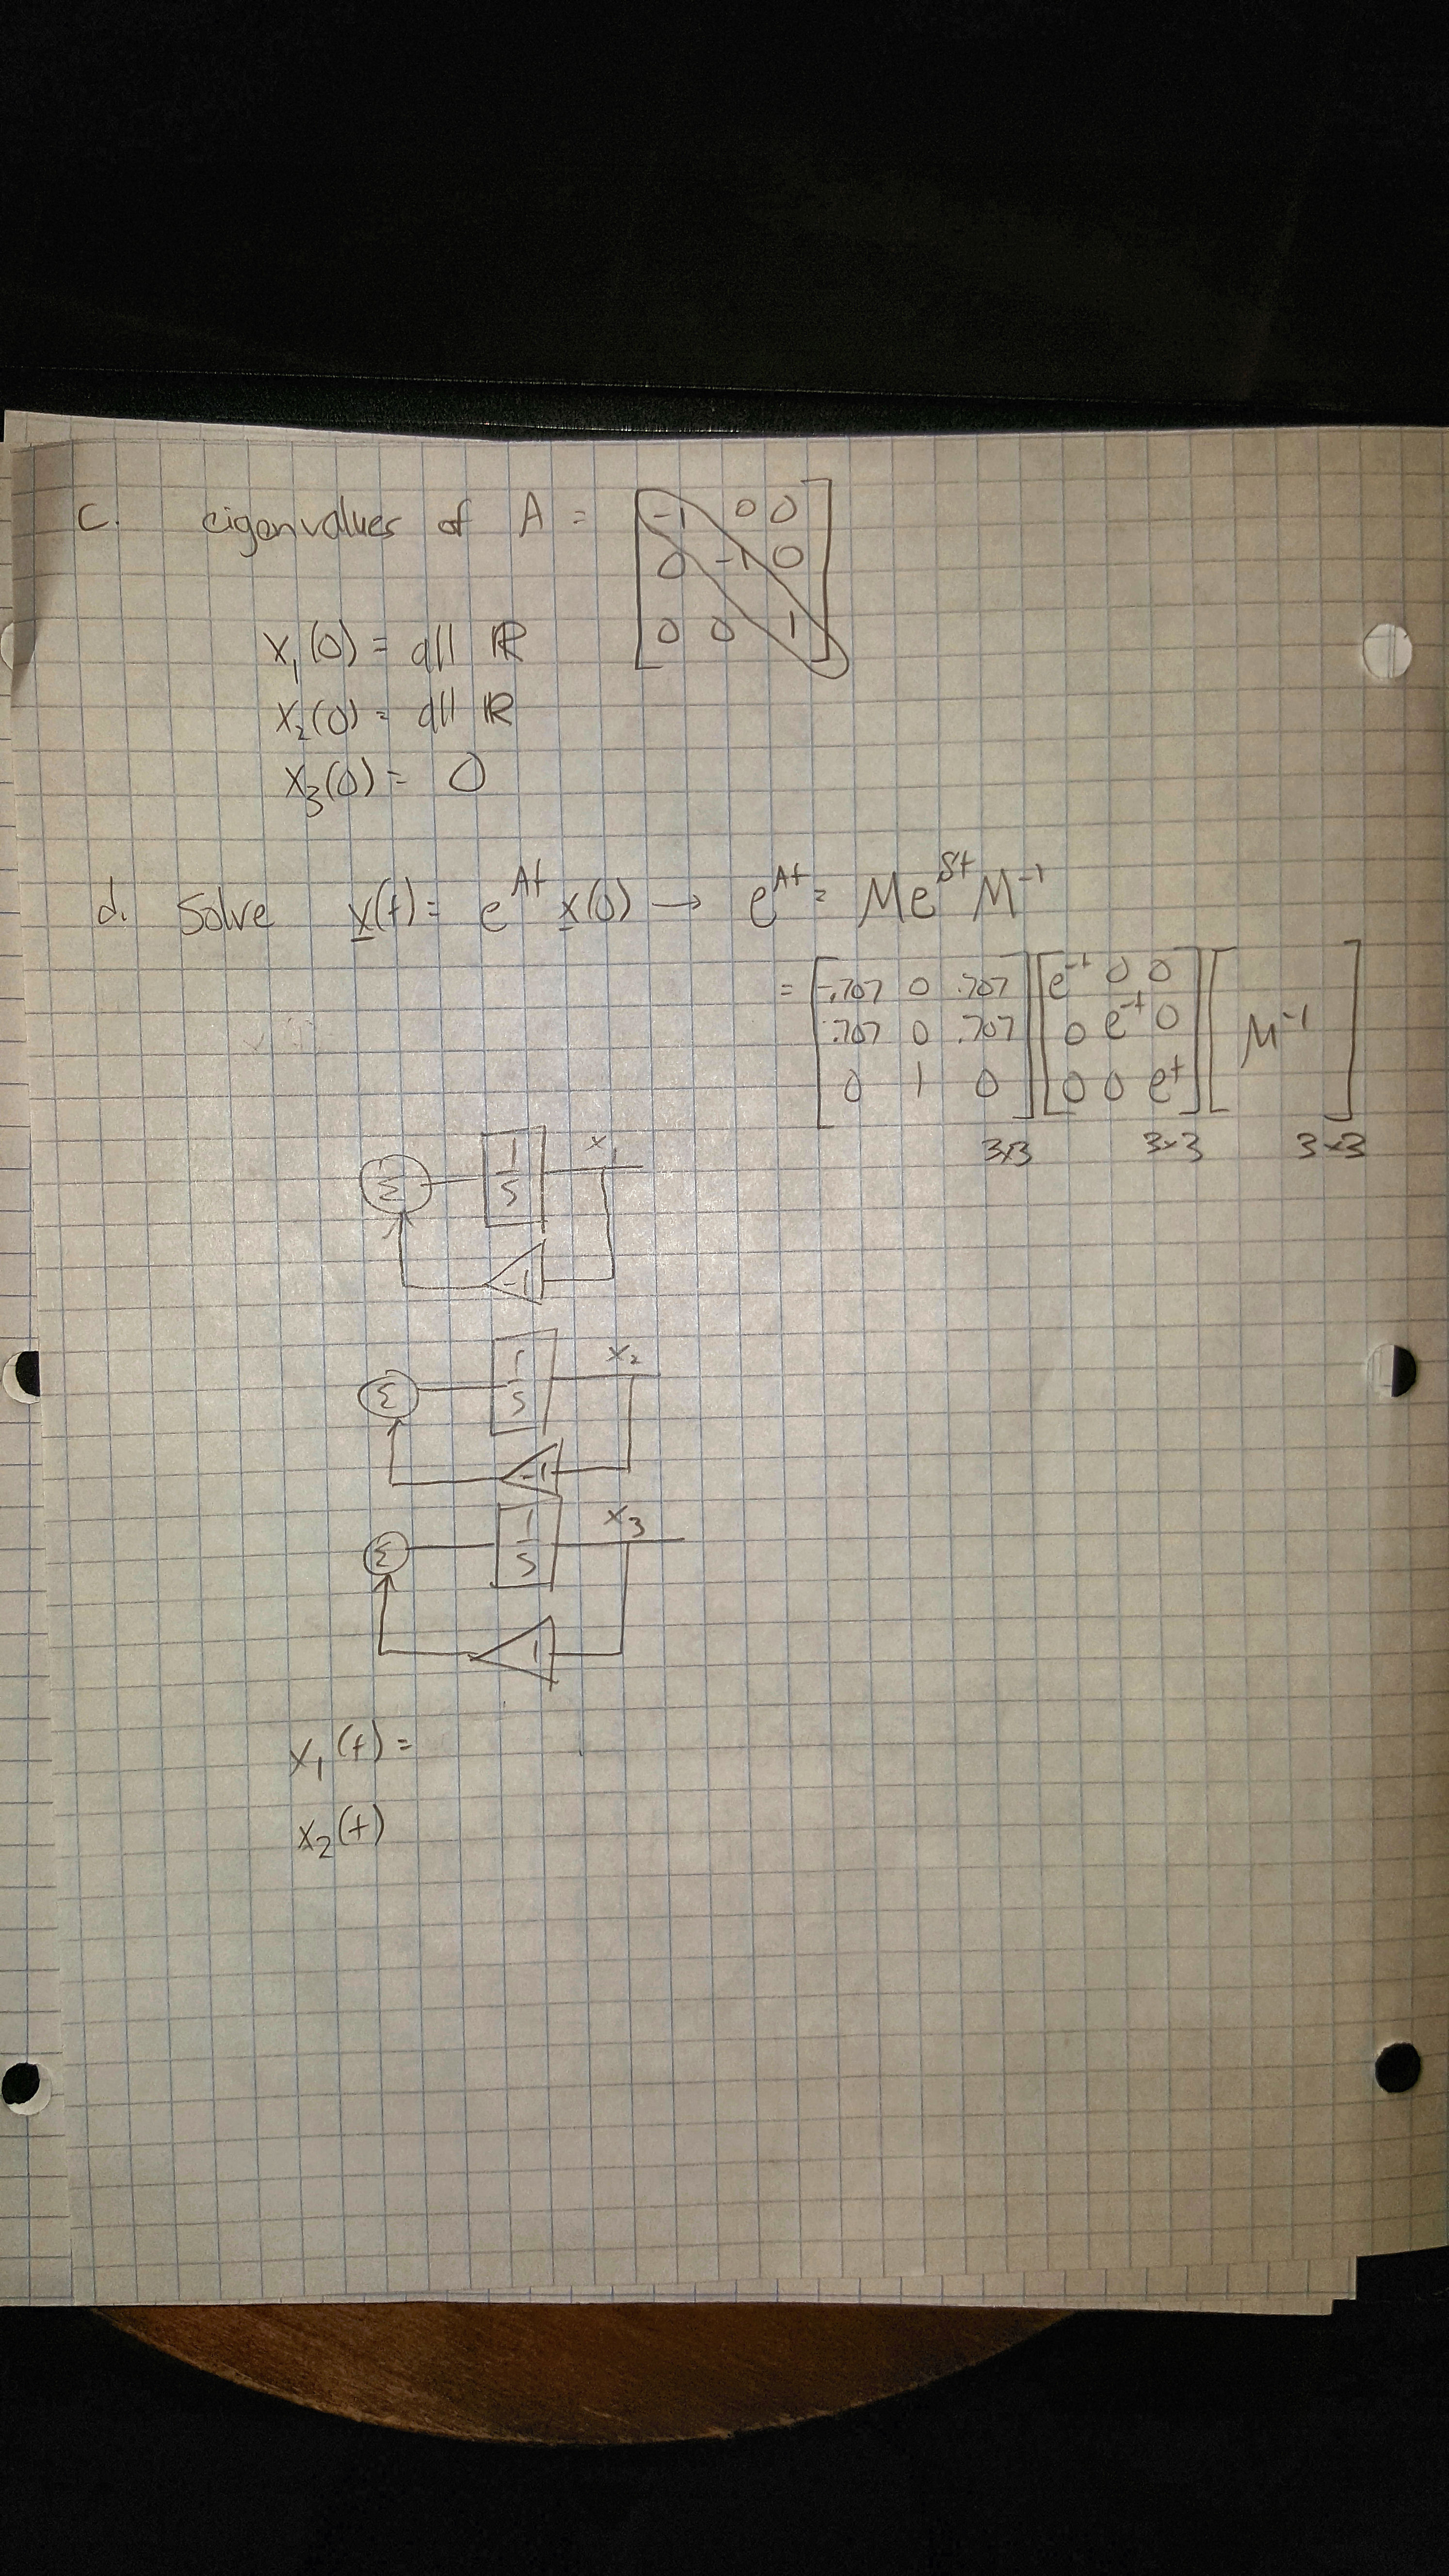 c. eigenvalues of A = [-1 0 0
0 -1 0
0 0 1]
x₁(0) = all ℝ
x₂(0) = all ℝ
x₃(0) = 0
d. Solve x(t) = e^At x(0) → e^At = Me^Λt M^-1
= [-.707 0 .707] [e^-t 0 0] [M^-1]
[.707 0 .707] [0 e^-t 0]
[0 1 0] [0 0 e^t]
3x3 3x3 3x3
Σ 1/s x₁
-1
Σ 1/s x₂
-1
Σ 1/s x₃
1
x₁(t) =
x₂(t)